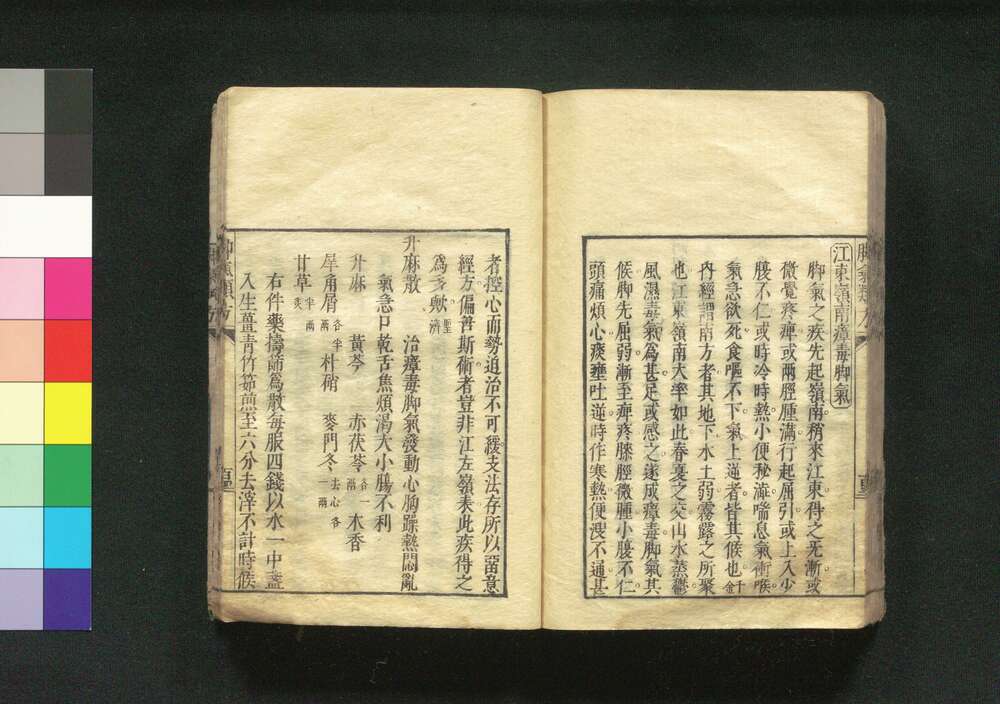 脚氣類方
江東嶺南瘴毒脚氣
脚氣之疾先起嶺南稍來江東得之无漸或
微覺疼痺或兩脛腫滿行起屈引或上入少
腹不仁或時冷時熱小便秘澁喘息氣衝喉
氣急欲死食嘔不下氣上逆者皆其候也千金
内經謂南方者其地下水土弱霧露之所聚
也江東嶺南大率如此春夏之交山水蒸鬱
風濕毒氣爲甚足或感之遂成瘴毒脚氣其
候脚先屈弱漸至痺疼膝脛微腫小腹不仁
頭痛煩心痰壅吐逆時作寒熱便溲不通甚
者控心而勢迫治不可緩支法存所以留意
經方偏善斯術者豈非江左嶺表此疾得之
爲多歟聖濟
升麻散　治瘴毒脚氣發動心胸躁熱悶亂
氣急口乾舌焦煩渴大小腸不利
升麻　黃芩　赤茯苓各一兩　木香
犀角屑各半兩　朴硝　麥門冬去心各一兩
甘草半兩炙
右件藥擣篩爲散每服四錢以水一中盞
入生薑青竹茹煎至六分去滓不計時候